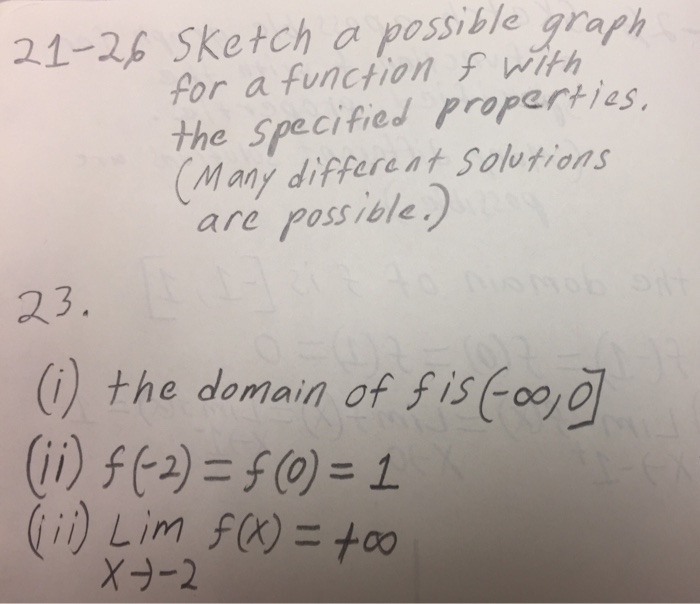 21-26 Sketch a possible graph
for a function f with
the specified properties.
(Many different solutions
are possible.)
23.
(i) the domain of f is (-∞,0]
(ii) f(-2) = f(0) = 1
(iii) Lim f(x) = +∞
x→-2